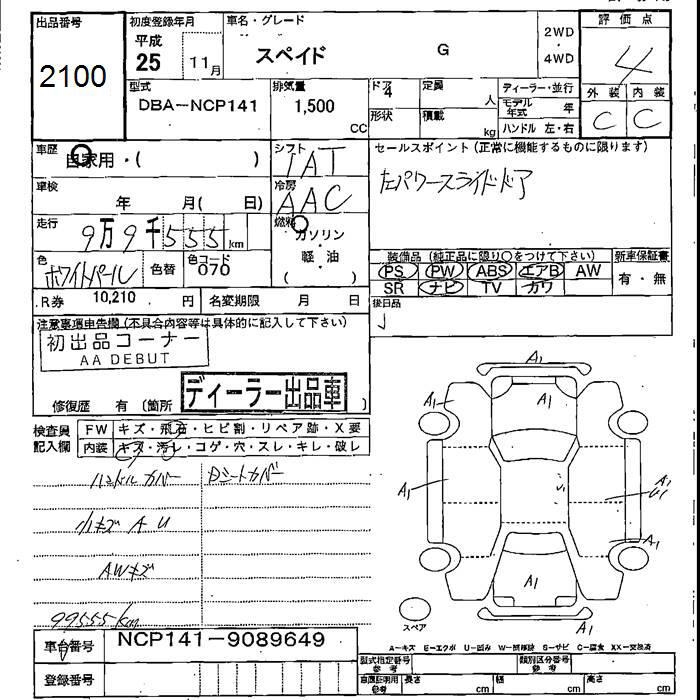 出品番号 初度登録年月 車名・グレード 評価点
平成
2100 25 11月 スペイド G 2WD・4WD 4
型式 排気量 ドア 定員 ディーラー・並行 外装 内装
DBA-NCP141 1,500 CC 4 人 モデル年式 年 C C
形状 積載 kg ハンドル 左・右
車歴 シフト セールスポイント (正常に機能するものに限ります)
自家用・( ) IAT
車検 冷房 左パワースライドドア
年 月( 日) AAC
走行 燃料
9万9千555km ガソリン・軽・油
色 色替 色コード 装備品 (純正品に限り○をつけて下さい) 新車保証書
ホワイトパール 070 PS PW ABS エアB AW 有・無
SR ナビ TV カワ
R券 10,210 円 名変期限 月 日 後日品
注意事項申告欄 (不具合内容等は具体的に記入して下さい)
初出品コーナー
AA DEBUT
ディーラー出品車
修復歴 有 〔箇所 〕
検査員記入欄 FW キズ・飛石・ヒビ割・リペア跡・X要
内装 キズ・汚レ・コゲ・穴・スレ・キレ・破レ
ハンドルカバー Dシートカバー
小キズ A U
AWキズ
99555km
A1
A1 A1 A1
A1 U1 A1
U1
A1
A1
A1
スペア
A-キズ E-エクボ U-凹み W-補修跡 S-サビ C-腐食 XX-交換済
車台番号 NCP141-9089649
型式指定番号 参考 類別区分番号 参考
登録番号 車庫証明用 参考 長さ cm 幅 cm 高さ cm